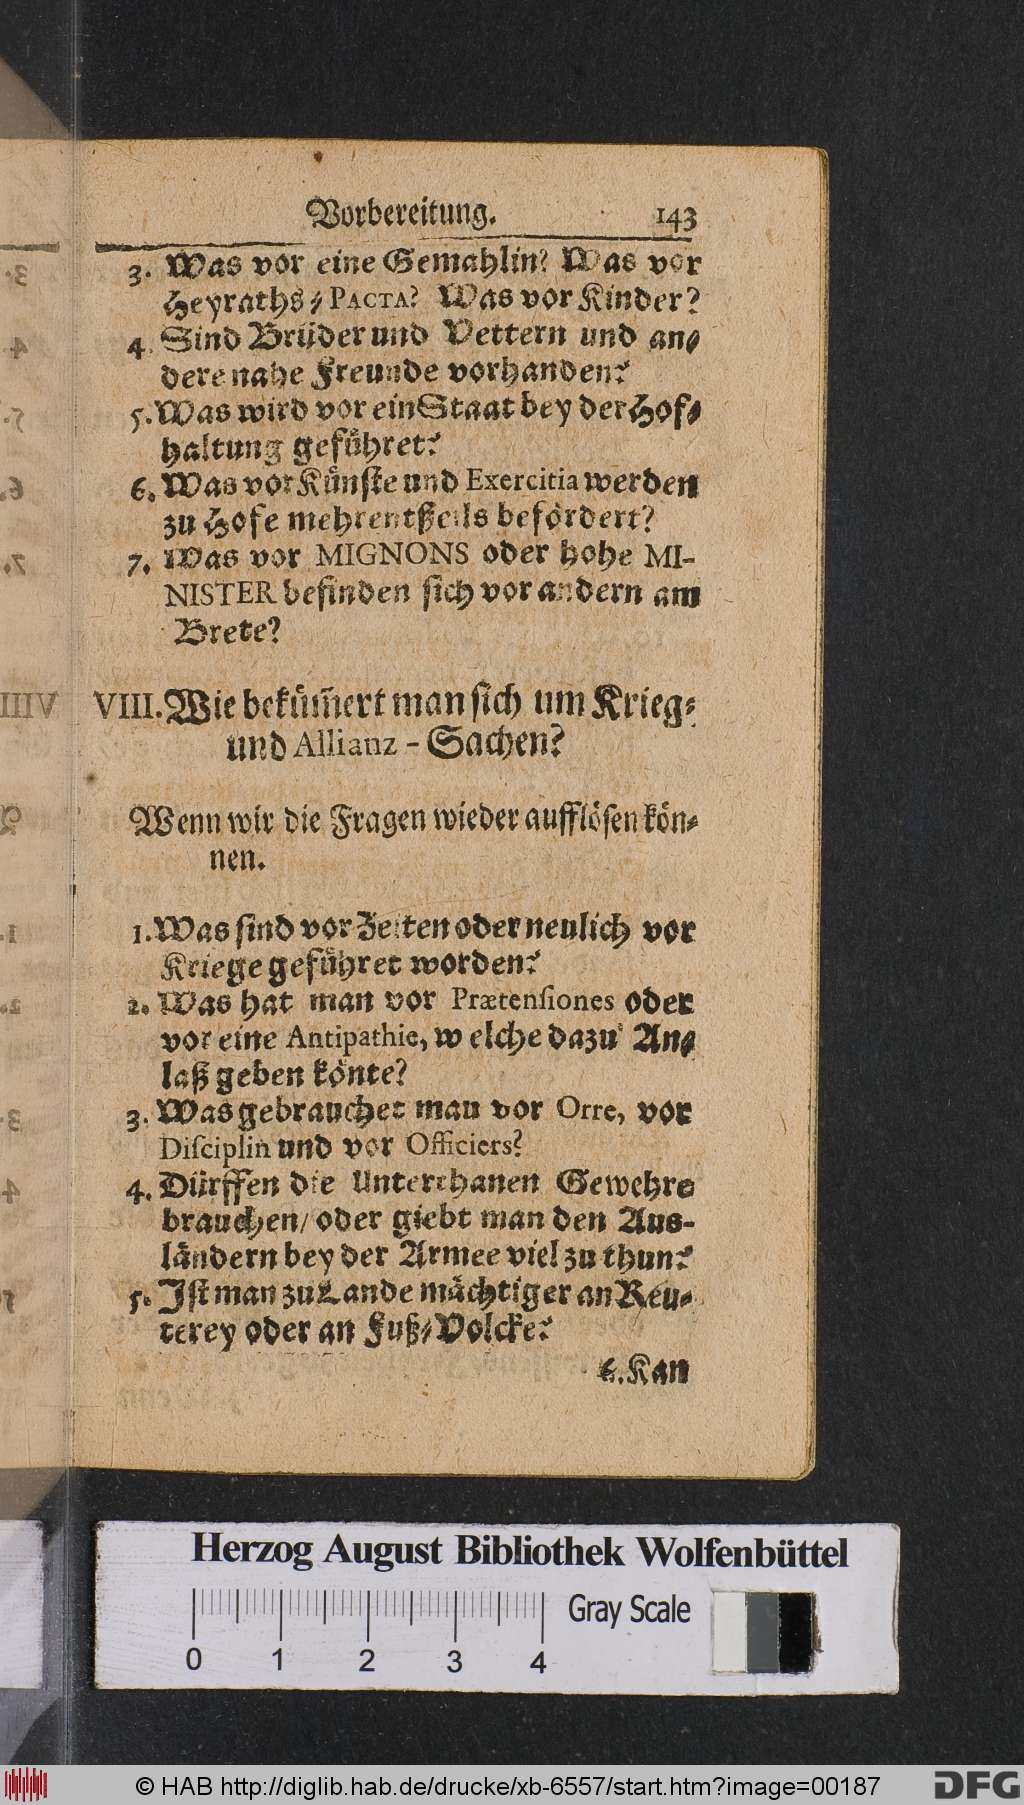 Vorbereitung. 143
3. Was vor eine Gemahlin? Was vor
Heyraths-PACTA? Was vor Kinder?
4. Sind Brüder und Vettern und an-
dere nahe Freunde vorhanden?
5. Was wird vor ein Staat bey der Hof-
haltung geführet?
6. Was vor Künste und Exercitia werden
zu Hofe mehrentheils befördert?
7. Was vor MIGNONS oder hohe MI-
NISTER befinden sich vor andern am
Brete?
VIII. Wie bekümert man sich um Krieg-
und Allianz-Sachen?
Wenn wir die Fragen wieder aufflösen kön-
nen.
1. Was sind vor Zeiten oder neulich vor
Kriege geführet worden?
2. Was hat man vor Prætensiones oder
vor eine Antipathie, welche dazu An-
laß geben könte?
3. Was gebrauchet man vor Orre, vor
Disciplin und vor Officiers?
4. Dürffen die Unterthanen Gewehre
brauchen/ oder giebt man den Aus-
ländern bey der Armee viel zu thun?
5. Ist man zu Lande mächtiger an Reu-
terey oder an Fuß-Volcke?
6. Kan
Herzog August Bibliothek Wolfenbüttel
Gray Scale
0 1 2 3 4
© HAB http://diglib.hab.de/drucke/xb-6557/start.htm?image=00187
DFG